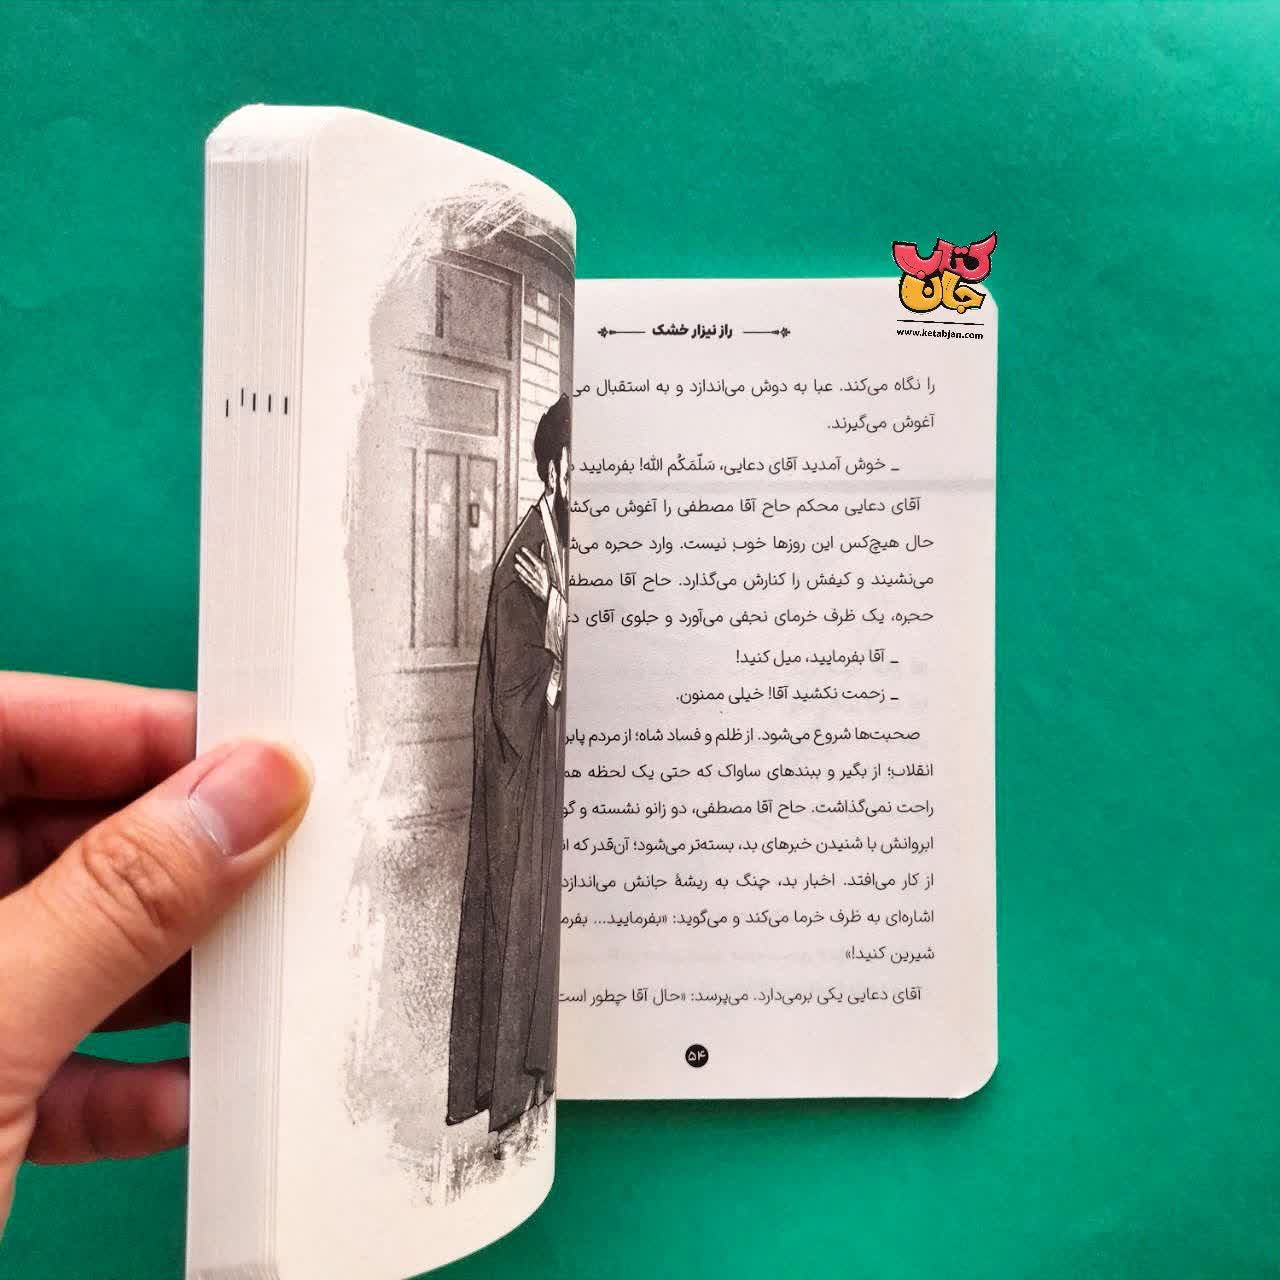 کتاب
جان
www.ketabjan.com
راز نیزار خشک
را نگاه می‌کند. عبا به دوش می‌اندازد و به استقبال
آغوش می‌گیرند.
ـ خوش آمدید آقای دعایی، سَلّمَکُم الله! بفرمایید
آقای دعایی محکم حاج آقا مصطفی را آغوش
حال هیچ‌کس این روزها خوب نیست. وارد حجره
می‌نشیند و کیفش را کنارش می‌گذارد. حاج آقا
حجره، یک ظرف خرمای نجفی می‌آورد و جلوی آقای
ـ آقا بفرمایید، میل کنید!
ـ زحمت نکشید آقا! خیلی ممنون.
صحبت‌ها شروع می‌شود. از ظلم و فساد شاه؛ از مردم
انقلاب؛ از بگیر و ببندهای ساواک که حتی یک لحظه
راحت نمی‌گذاشت. حاج آقا مصطفی، دو زانو نشسته و
ابروانش با شنیدن خبرهای بد، بسته‌تر می‌شود؛ آن‌قدر که
از کار می‌افتد. اخبار بد، چنگ به ریشهٔ جانش می‌اندازد
اشاره‌ای به ظرف خرما می‌کند و می‌گوید: «بفرمایید...
شیرین کنید!»
آقای دعایی یکی برمی‌دارد. می‌پرسد: «حال آقا چطور است
۵۴